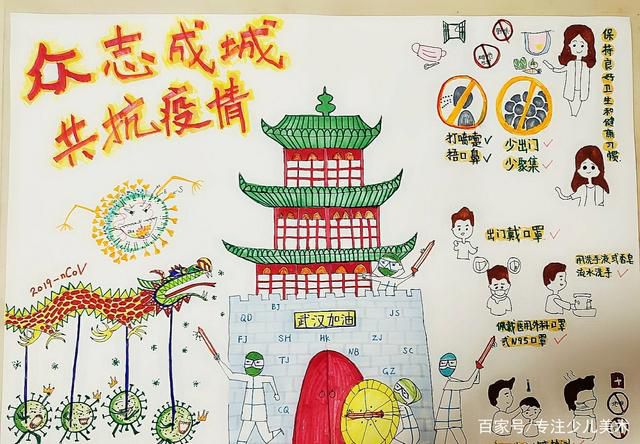 众志成城
共抗疫情
保持良好卫生和健康习惯
打喷嚏
捂口鼻
少出门
少聚集
出门戴口罩
用洗手液或香皂
流水洗手
佩戴医用外科口罩
或N95口罩
2019-nCoV
武汉加油
QD
BJ
JS
FJ
SH
HK
ZJ
TJ
NB
SC
GZ
CQ
百家号/专注少儿美术